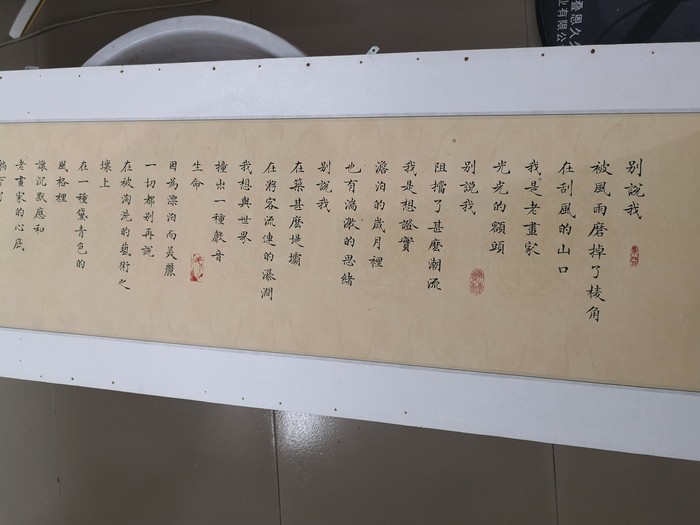 別說我
被風雨磨掉了棱角
在刮風的山口
我是老畫家
光光的額頭
別說我
阻擋了甚麽潮流
我是想證實
漂泊的歲月裡
也有漪漣的思緒
別說我
在築甚麽堤壩
在將客流連的瀑澗
我想與世界
撞出一種聲音
生命
因為漂泊而美麗
一切都別再說
在被淘洗的藝術之
壤上
在一種黛青色的
風格裡
讓沉默應和
老畫家的心底
叠恩久
业有限公